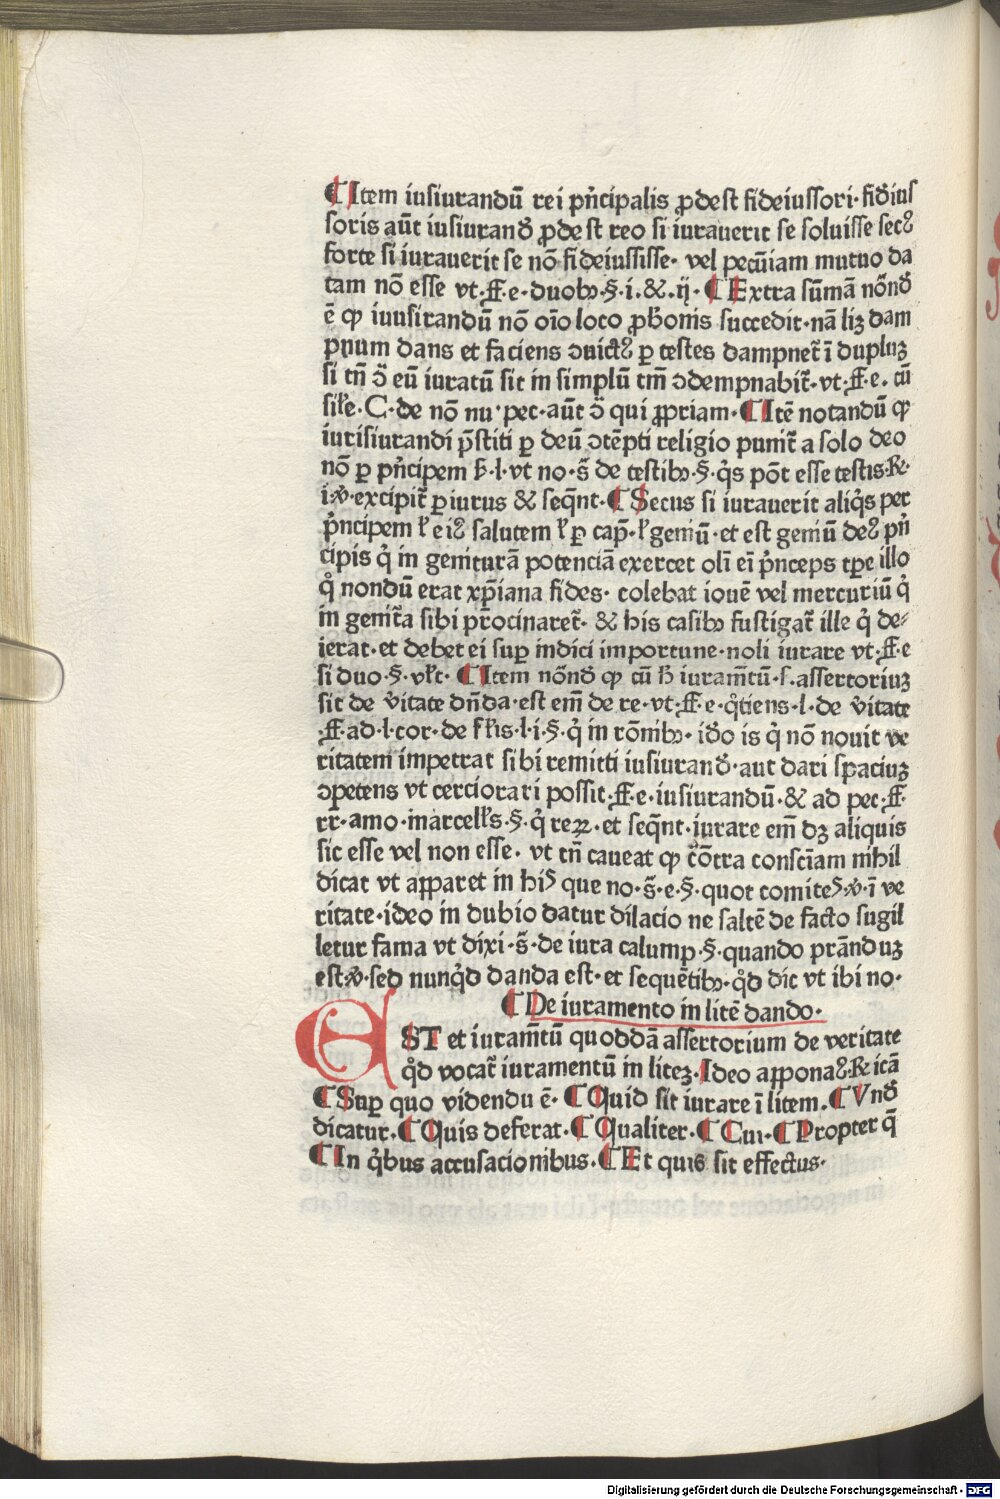 ¶ Item iusiurandū rei pͥncipalis ꝓdest fideiussori· fiđius
soris aūt iusiurand̾ ꝓdest reo si iurauerit se soluisse secꝰ
forte si iurauerit se nō fideiussisse· vel pecūiam mutuo da
tam nō esse vt·ff·e·duobꝫ·§·i·&·ij· ¶ Extra sūmā nōnd̾
ē ꝙ iuusirandū nō oīo loco ꝓbonis succedit·nā liꝫ dam
pnum dans et faciens ↄuictꝰ ꝑ testes dampnet᷑ ī dupluꝫ
si tn̄ ↄ̄ eū iuratū sit in simplū tm̄ ↄdempnabit᷑·vt·ff·e. cū
sil̾e·C·de nō nu·pec·aūt ↄ̄ qui ꝓpriam· ¶ Itē notandū ꝙ
iurisiurandi p̄stiti ꝑ deū ↄtēpti religio punit᷑ a solo deo
nō ꝑ pͥncipem ħ·l·vt no·s̄ de testibꝫ·§·qͥs pōt esse testis·Re·
i·ꝟ·excipit᷑ ꝑiurus & seqn̄t· ¶ Secus si iurauerit aliqͥs per
pͥncipem ł eiꝰ salutem ł ꝑ cap̄·ł geniū·et est geniū deꝰ pͥn
cipis qͥ in geniturā potenciā exercet oli̅ ei̅ pͥnceps tꝑe illo
qͦ nondū erat xp̄iana fides· colebat iouē vel mercuriū qͥ
in genit᷑a sibi pr̄ocinaret᷑· & his casibꝫ fustigat᷑ ille qͥ de⸗
ierat·et debet ei suꝑ indici importune·noli iurare vt·ff·e
si duo·§·vłt· ¶ Item nōnd̾ ꝙ cū ħ iuram̄tū·s·assertoriuꝫ
sit de v̾itate dn̄da·est em̄ de re·vt·ff·e·qͦtiens·l·de v̾itate
·ff·ad·l·cor·de fłis·l·i·§·qͥ in rōnibꝫ· iđo is qͥ nō nouit ve
ritatem impetrat sibi remitti iusiurand̾·aut dari spaciuꝫ
ↄpetens vt cerciorari possit·ff·e·iusiurandū·& ad pec·ff·
rr·amo·marcełs·§·qͥ reꝝ·et seqn̄t·iurare em̄ dꝫ aliquis
sic esse vel non esse· vt tn̄ caueat ꝙ cōtra consc̄iam nihil
dicat vt apparet in hiis que no·s̄·e·§·quot comites·ꝟ·ī ve
ritate·ideo in dubio datur dilacio ne saltē de facto sugil
letur fama vt dixi·s̄·de iura calump·§·quando prānduꝫ
est·ꝟ·sed nunqͥd danda est·et sequētibꝫ·qͦd dic vt ibi no·
¶ De iuramento in litē dando·
EST et iuram̄tū quoddā assertorium de veritate
qͦd vocat᷑ iuramentū in liteꝫ·Ideo apponaꝰ·Re icā
¶ Suꝑ quo videndu ē· ¶ Quid sit iurare ī litem. ¶ Vnd̾
dicatur. ¶ Quis deferat· ¶ Qualiter· ¶ Cui· ¶ Propter q̄
¶ In qͥbus accusacionibus· ¶ Et quis sit effectus·
Digitalisierung gefördert durch die Deutsche Forschungsgemeinschaft - DFG